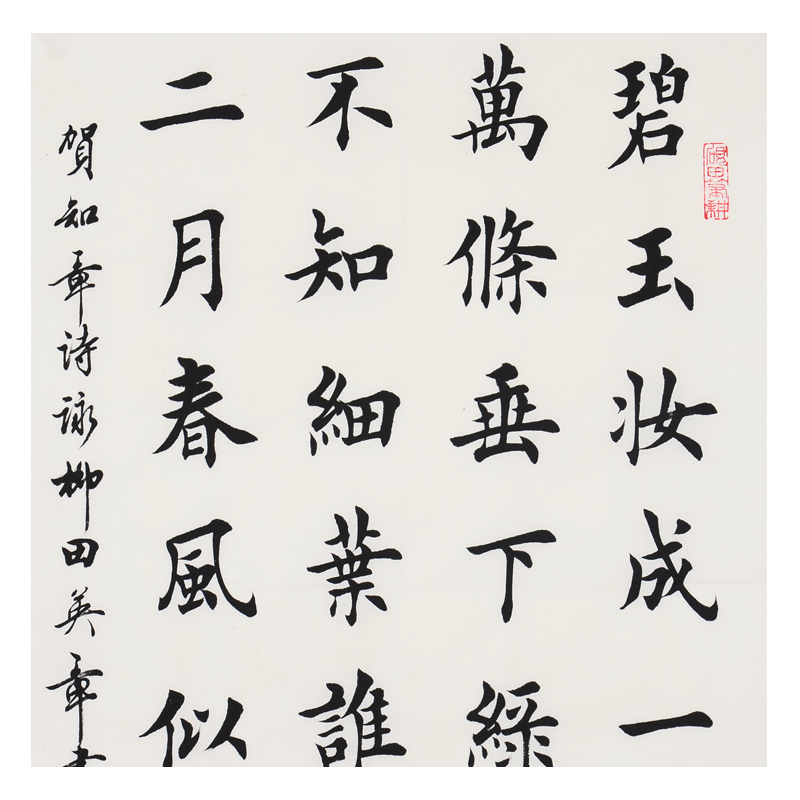 硯田筆耕
碧玉妆成一
萬條垂下綠
不知細葉誰
二月春風似
賀知章詩詠柳田英章